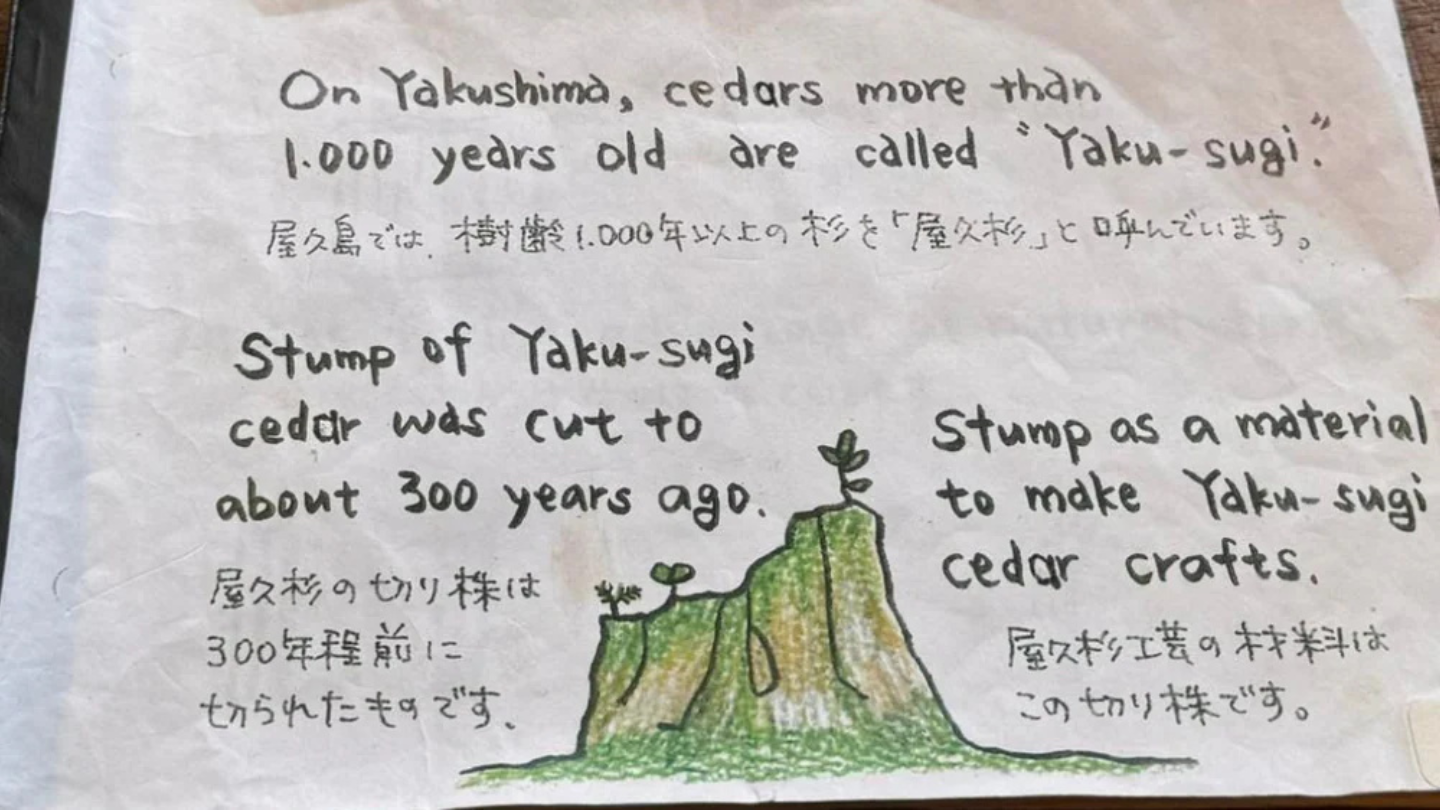 On Yakushima, cedars more than
1.000 years old are called "Yaku-sugi."
屋久島では、樹齢1.000年以上の杉を「屋久杉」と呼んでいます。
Stump of Yaku-sugi
cedar was cut to
about 300 years ago.
屋久杉の切り株は
300年程前に
切られたものです。
Stump as a material
to make Yaku-sugi
cedar crafts.
屋久杉工芸の材料は
この切り株です。